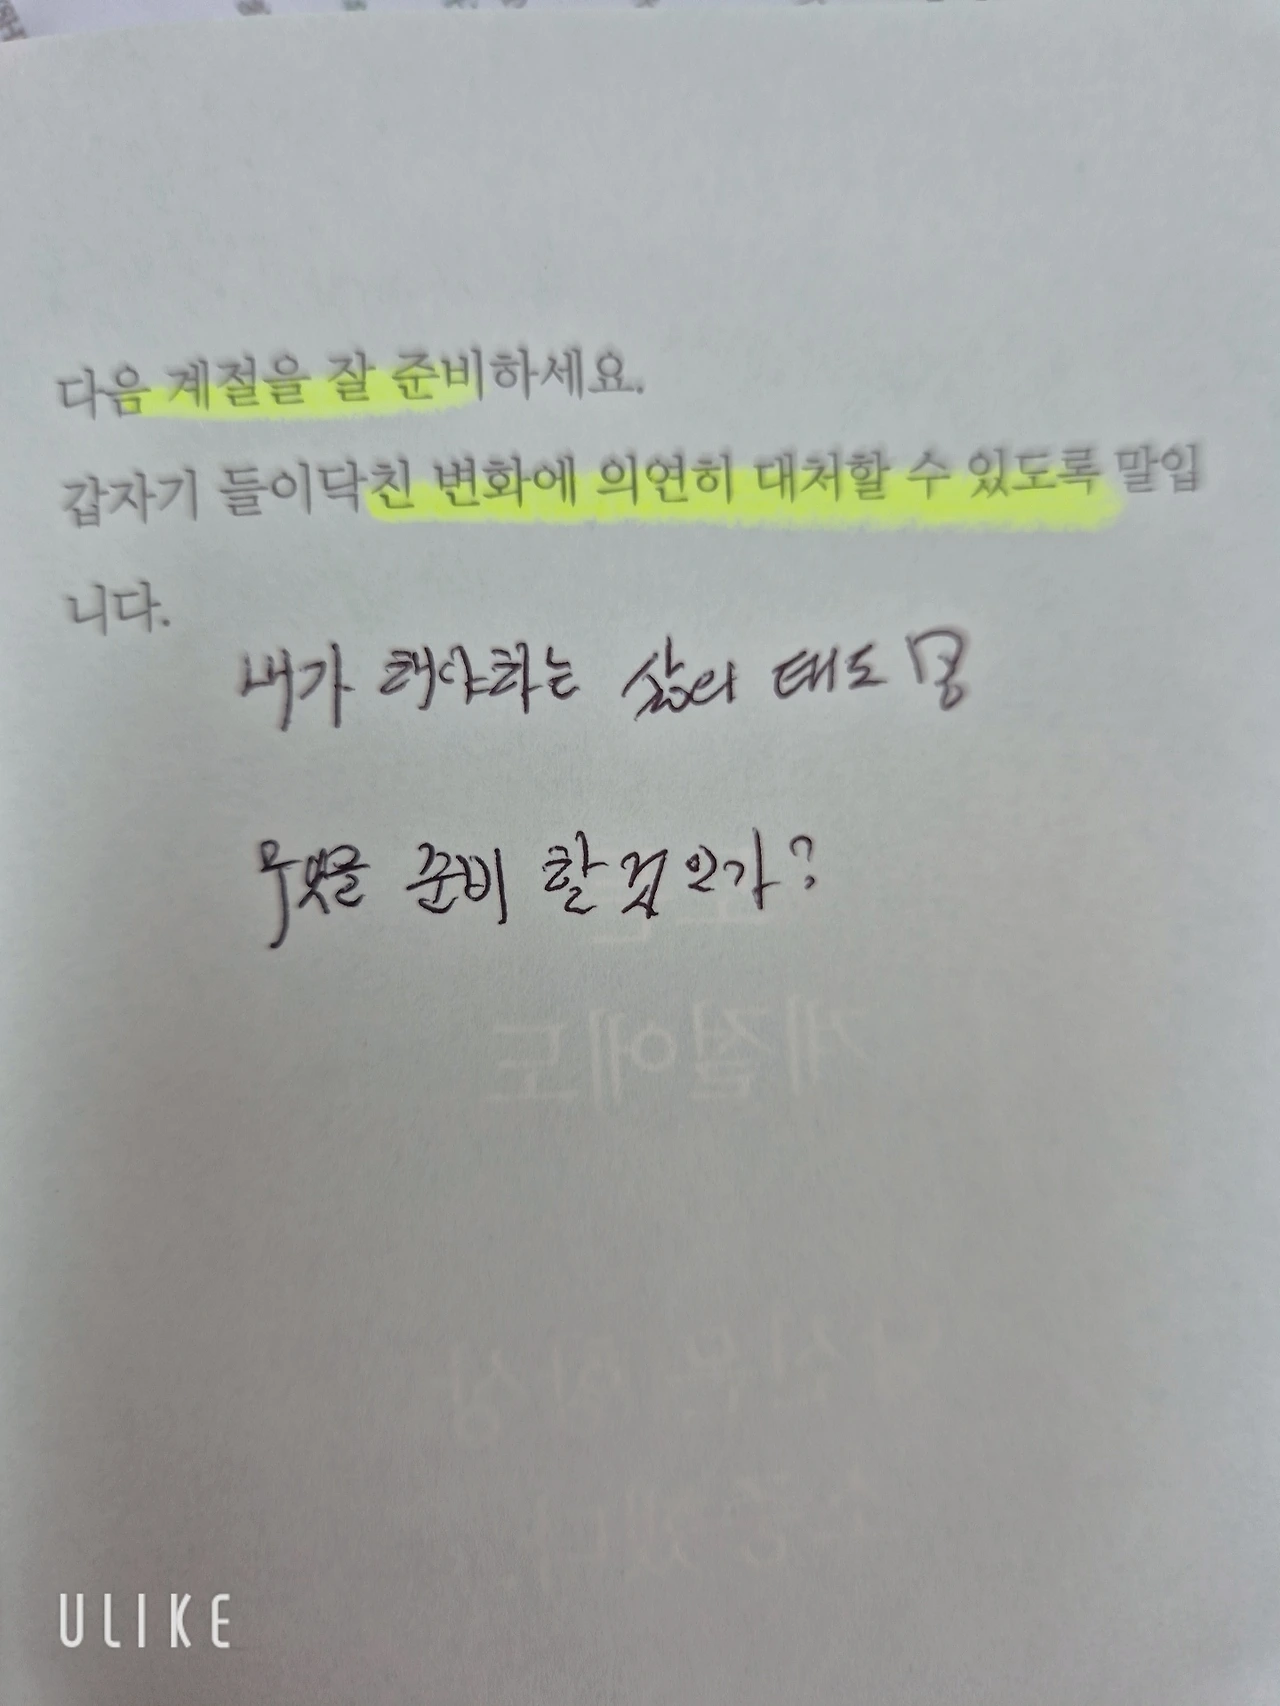 다음 계절을 잘 준비하세요.
갑자기 들이닥친 변화에 의연히 대처할 수 있도록 말입
니다.
내가 해야하는 삶의 태도
무엇을 준비 할 것인가?
계절에도
ULIKE